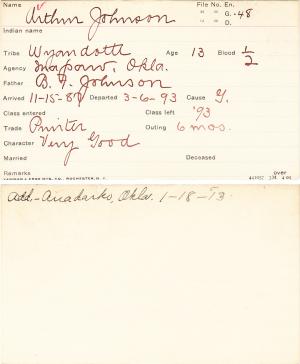 Name File No. En.
Arthur Johnson " " G. -48
Indian name " " O.
Tribe Wyandotte Age 13 Blood 1/2
Agency Quapaw, Okla.
Father B. F. Johnson
Arrived 11-15-87 Departed 3-6-93 Cause G.
Class entered Class left '93
Trade Printer Outing 6 mos.
Character Very Good
Married Deceased
Remarks over
Add-Anadarko, Okla. 1-18-13